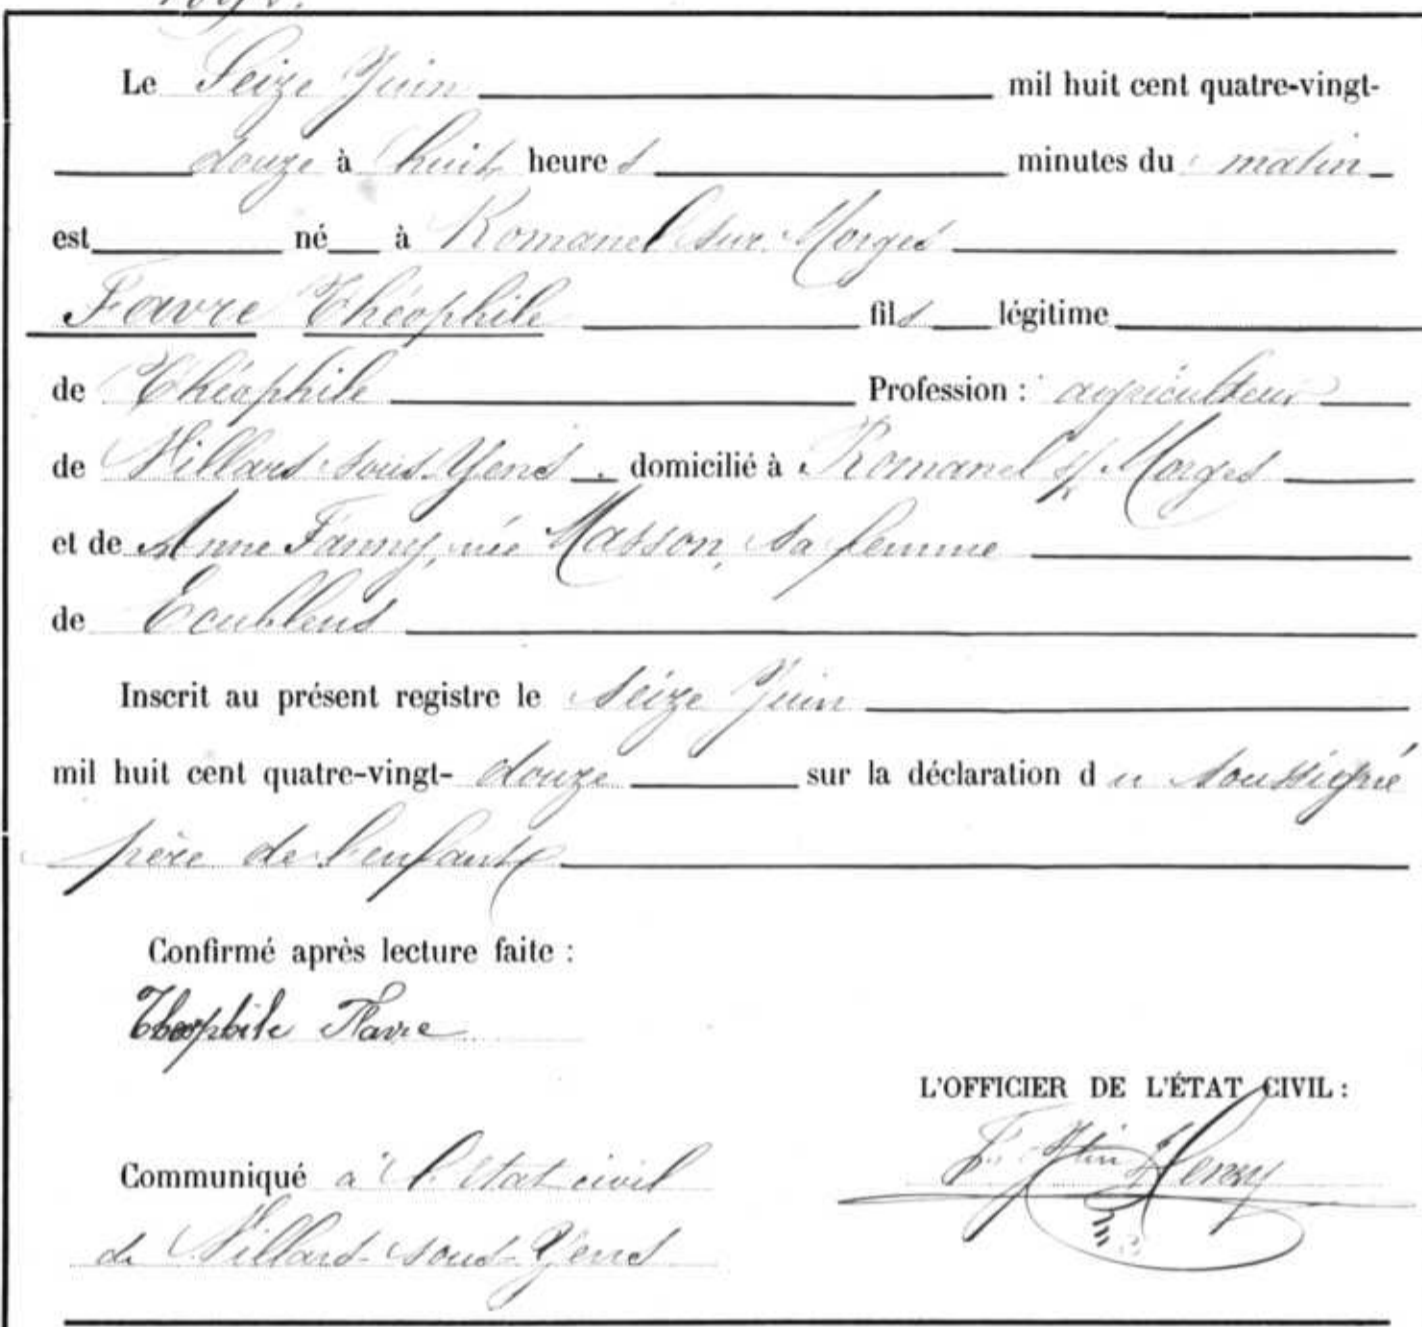 Le Seize Juin mil huit cent quatre-vingt-
douze à huit heures minutes du matin
est né à Romanel sur Morges
Favre Théophile fils légitime
de Théophile Profession : agriculteur
de Villars sous Yens . domicilié à Romanel s/ Morges
et de Anne Fanny, née Masson, sa femme
de Ecublens
Inscrit au présent registre le seize Juin
mil huit cent quatre-vingt- douze sur la déclaration du soussigné
père de l'enfant
Confirmé après lecture faite :
Théophile Favre
L'OFFICIER DE L'ÉTAT CIVIL :
Communiqué à l'Etat civil
de Villars-sous-Yens